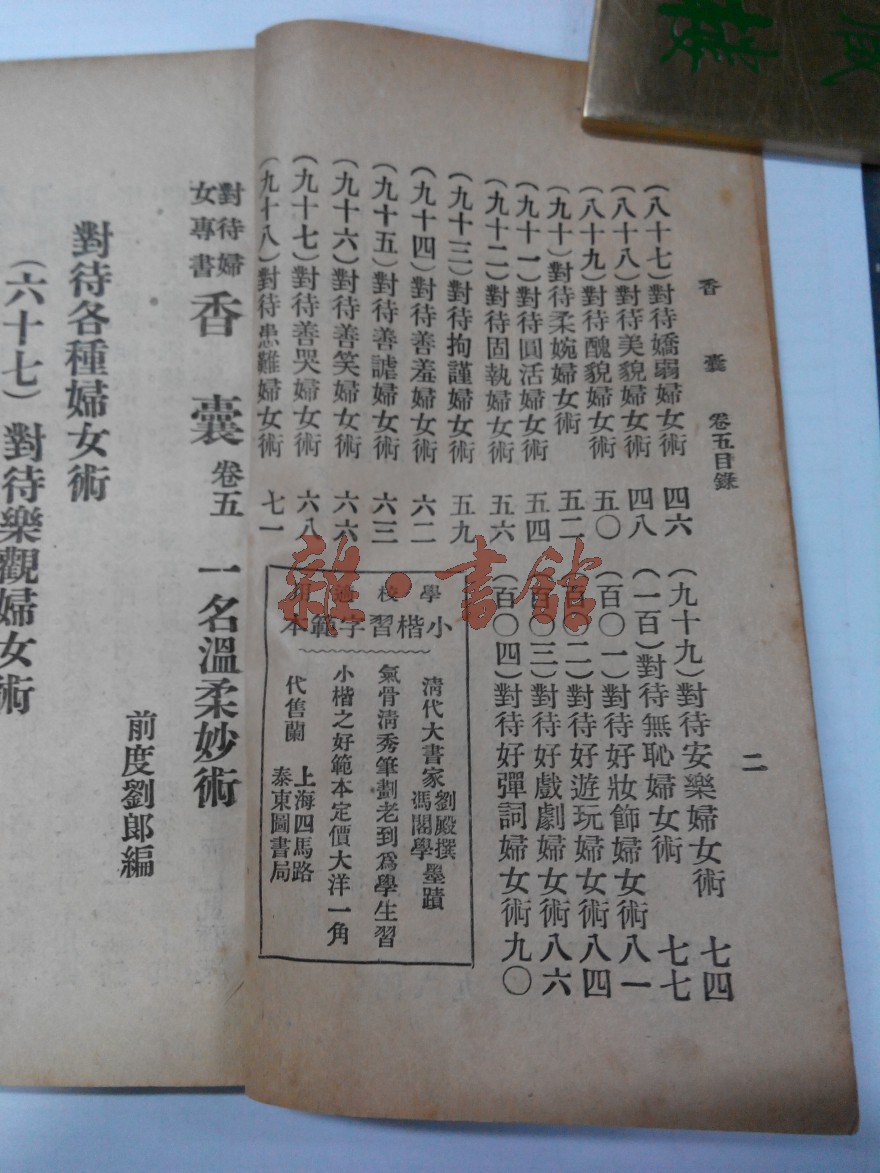 香囊 卷五目錄
二
(八十七)對待嬌弱婦女術 四六
(八十八)對待美貌婦女術 四八
(八十九)對待醜貌婦女術 五〇
(九十)對待柔婉婦女術 五二
(九十一)對待圓活婦女術 五四
(九十二)對待固執婦女術 五六
(九十三)對待拘謹婦女術 五九
(九十四)對待善羞婦女術 六二
(九十五)對待善謔婦女術 六三
(九十六)對待善笑婦女術 六六
(九十七)對待善哭婦女術 六八
(九十八)對待患難婦女術 七一
(九十九)對待安樂婦女術 七四
(一百)對待無恥婦女術 七七
(百〇一)對待好妝飾婦女術 八一
(百〇二)對待好遊玩婦女術 八四
(百〇三)對待好戲劇婦女術 八六
(百〇四)對待好彈詞婦女術 九〇
學校適用
小楷習字範本
清代大書家劉殿撰馮閣學墨蹟
氣骨清秀筆劃老到爲學生習
小楷之好範本定價大洋一角
代售蘭 上海四馬路泰東圖書局
對待婦女專書 香囊 卷五 一名溫柔妙術
前度劉郎編
對待各種婦女術
(六十七)對待樂觀婦女術
雜·書館